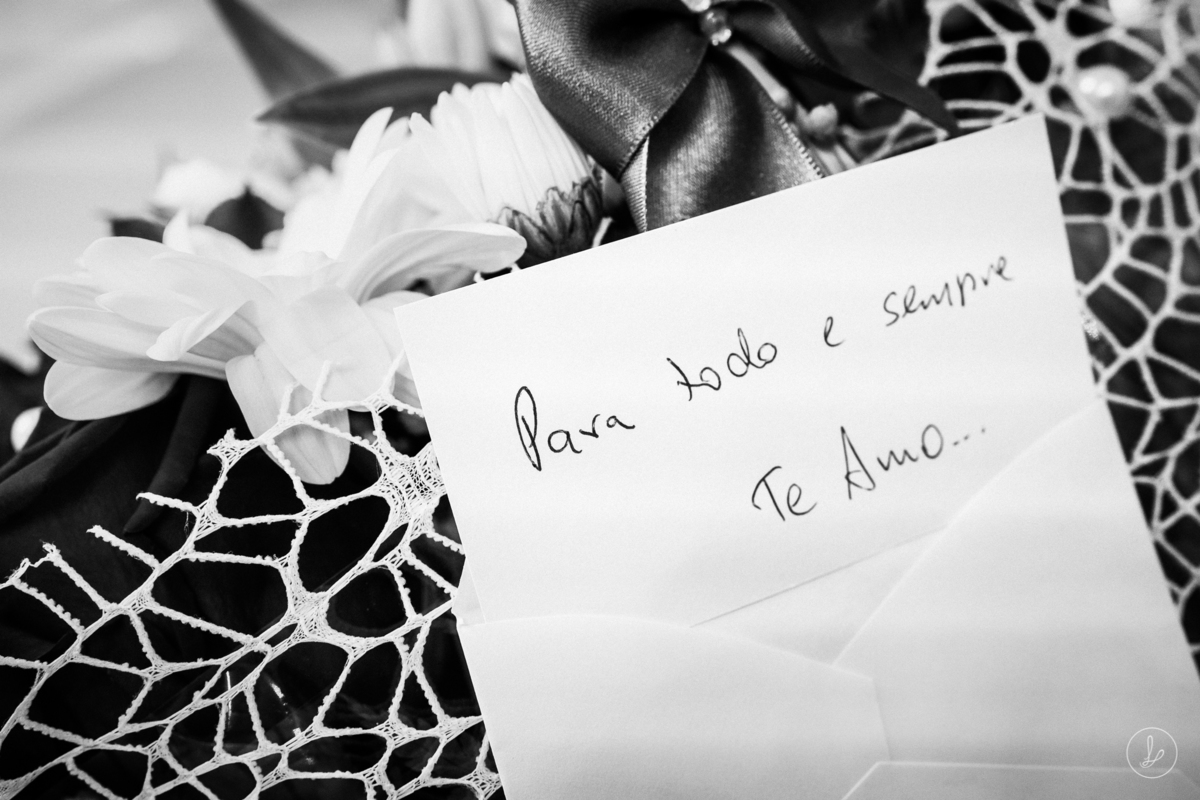 Para todo e sempre
Te Amo...